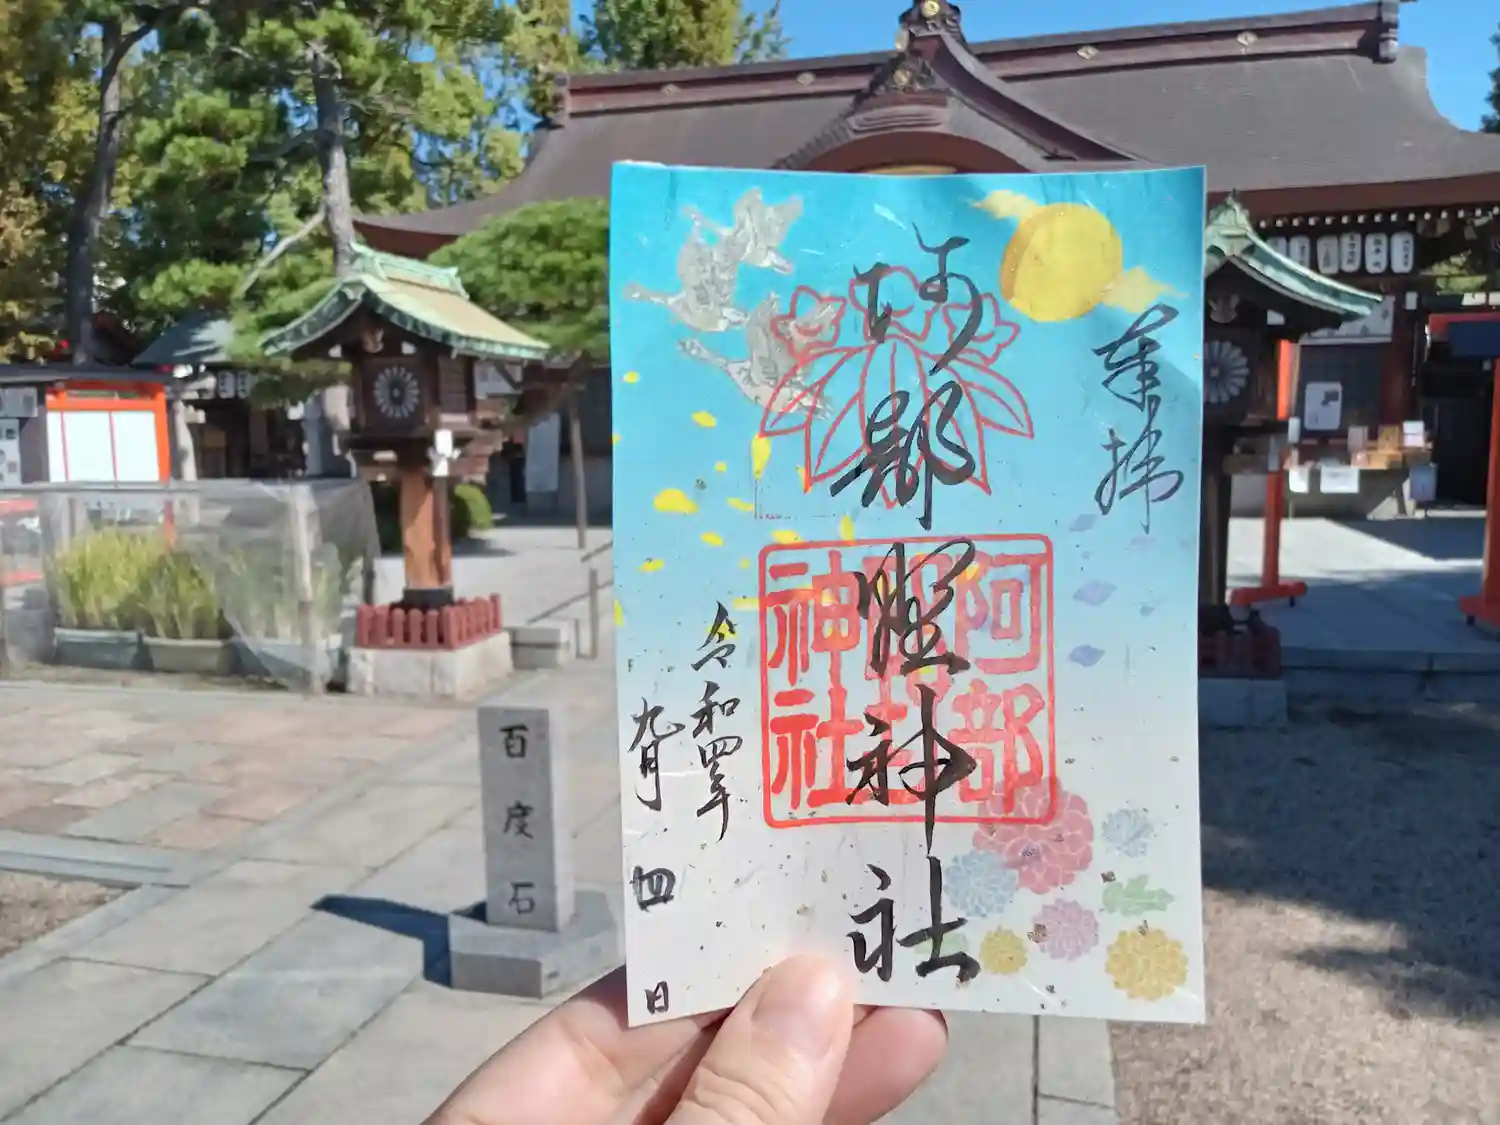 奉拝
阿部野神社
阿部野神社
令和四年
九月四日
百度石